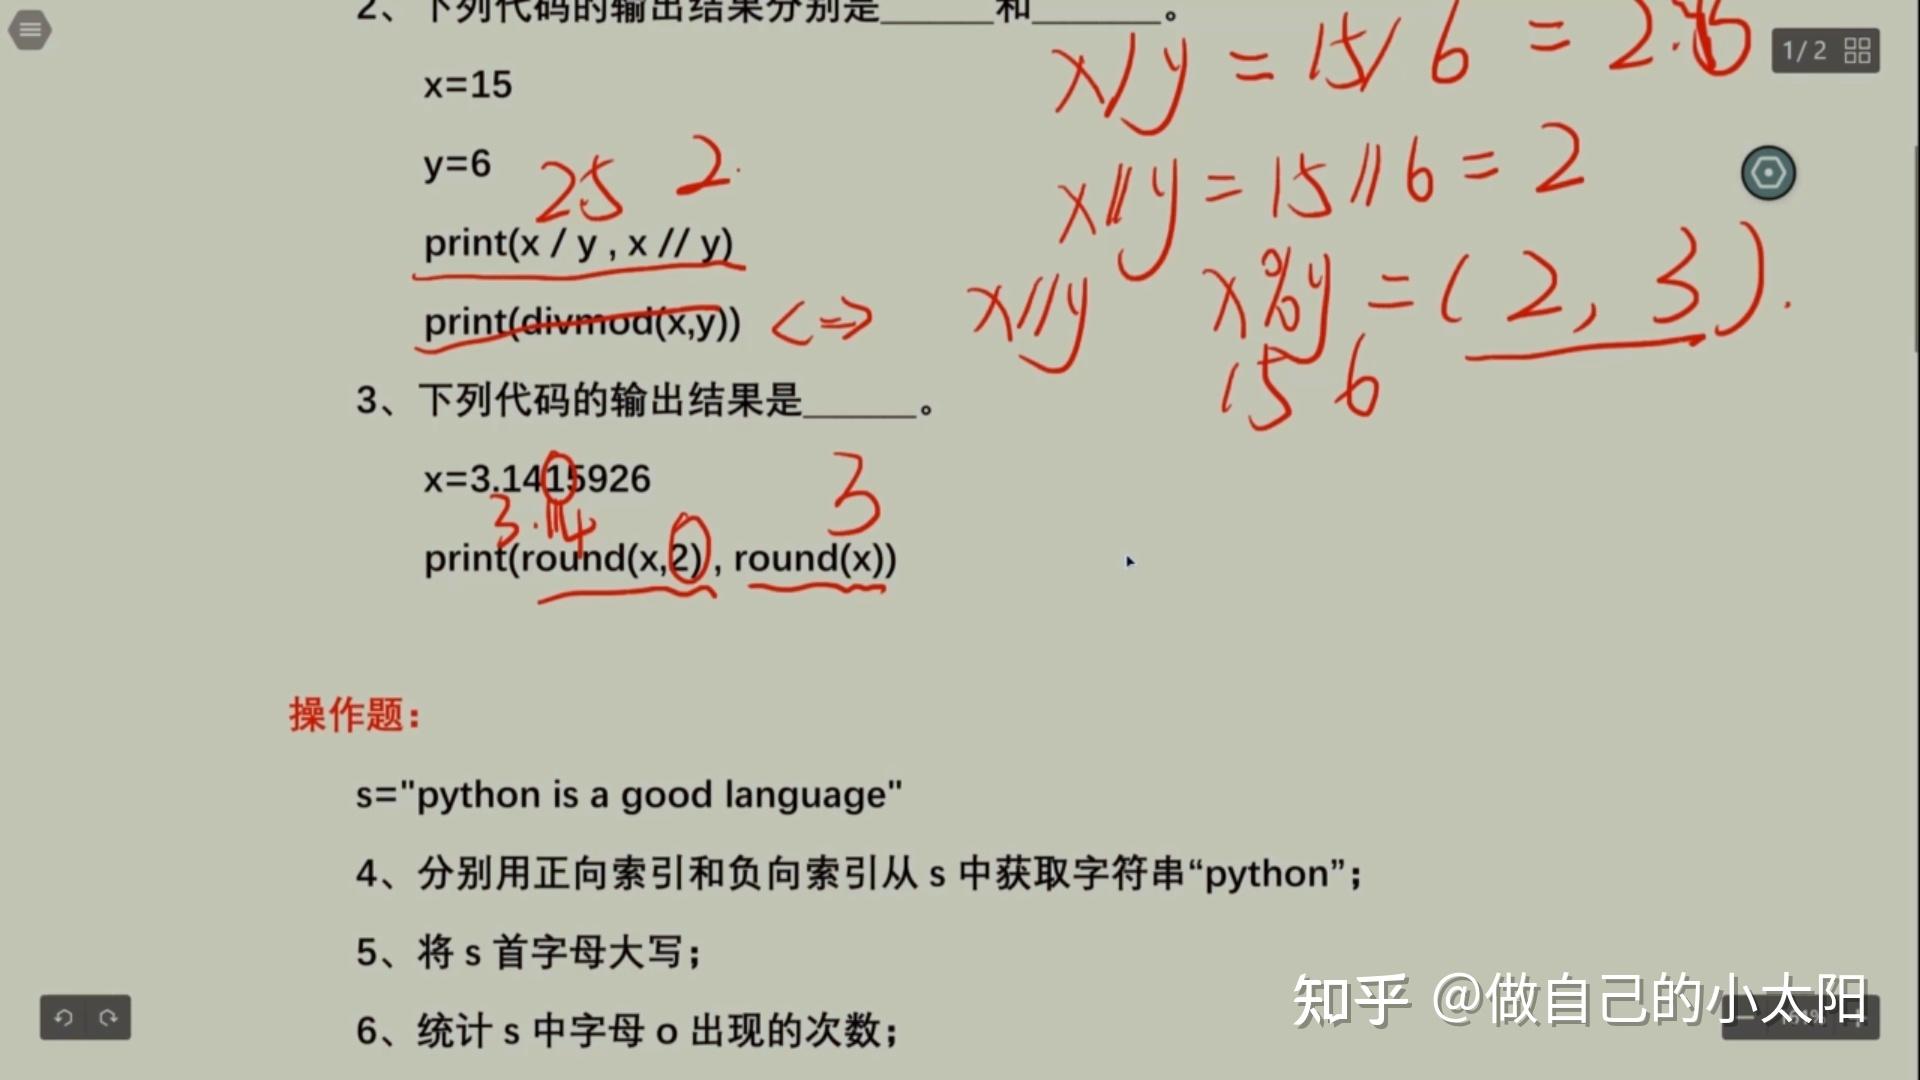 2、下列代码的输出结果分别是______和_______。
x/y = 15/6 = 2.5
1/2
x=15
y=6
25 2.
x//y = 15//6 = 2
print(x / y , x // y)
print(divmod(x,y)) <=> x//y x%y = (2, 3).
15 6
3、下列代码的输出结果是______。
x=3.1415926
3.14 3
print(round(x,2) , round(x))
操作题：
s="python is a good language"
4、分别用正向索引和负向索引从 s 中获取字符串“python”；
5、将 s 首字母大写；
6、统计 s 中字母 o 出现的次数；
知乎 @做自己的小太阳